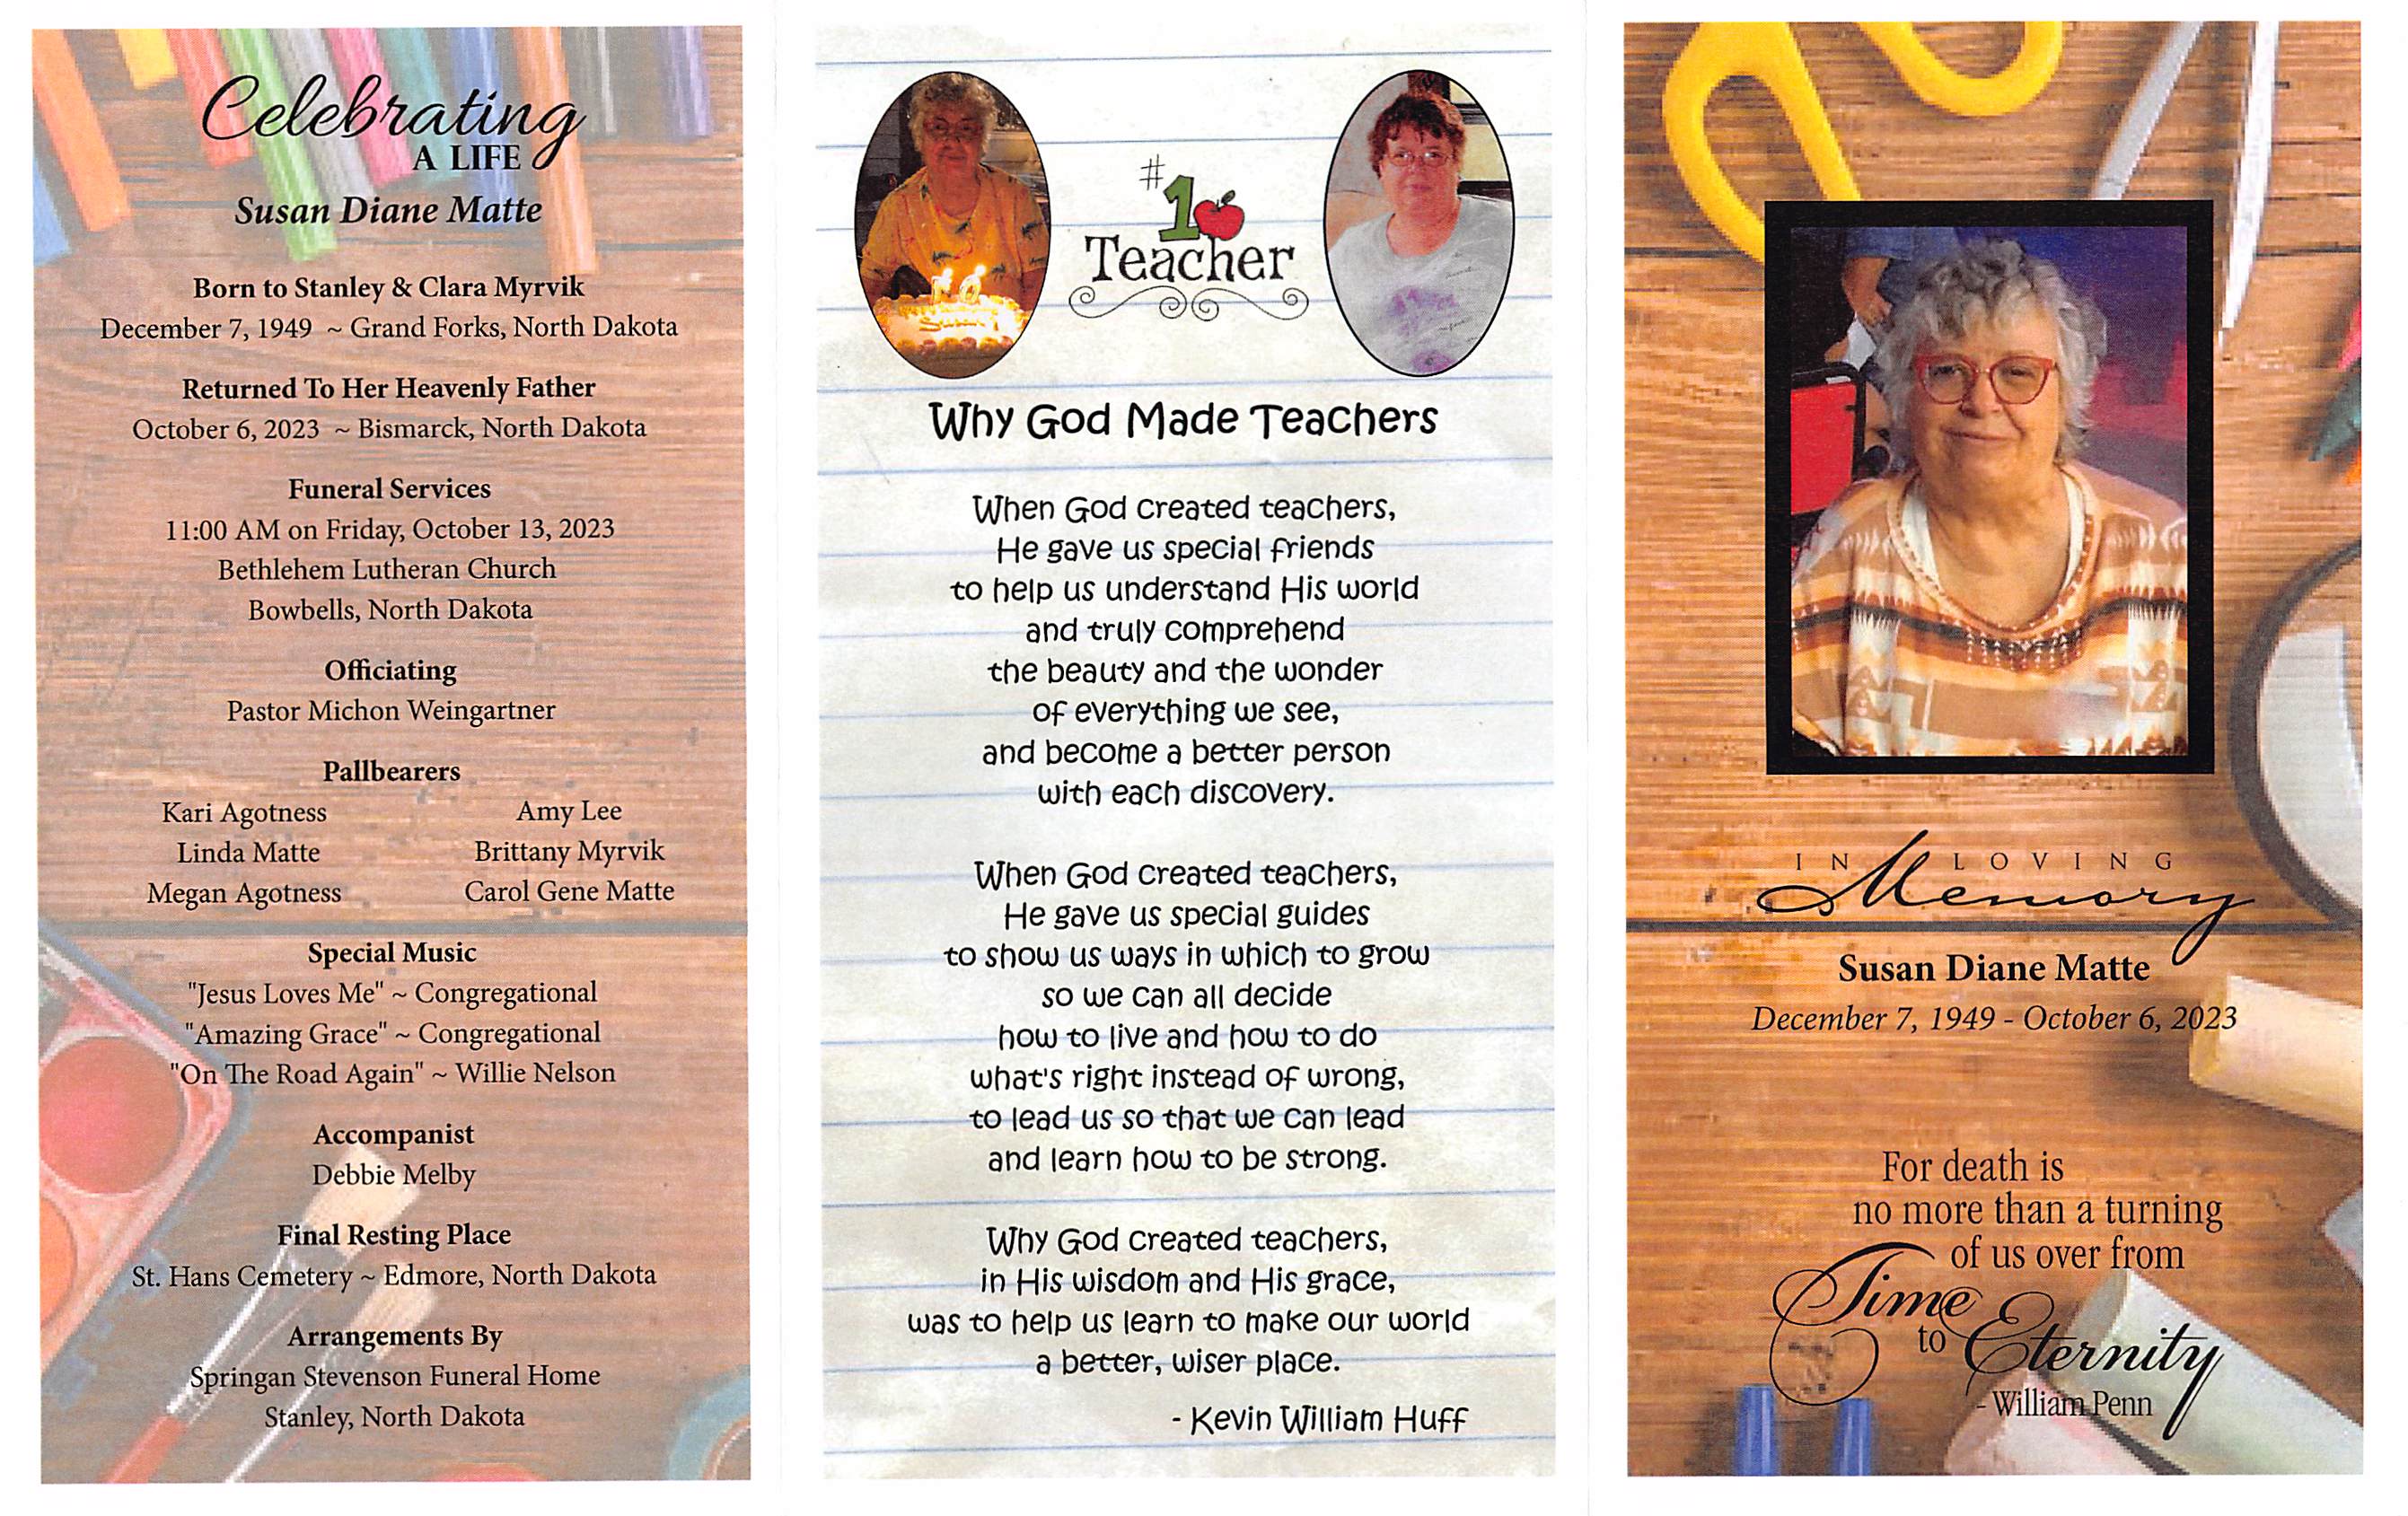 Celebrating
A LIFE
Susan Diane Matte
Born to Stanley & Clara Myrvik
December 7, 1949 ~ Grand Forks, North Dakota
Returned To Her Heavenly Father
October 6, 2023 ~ Bismarck, North Dakota
Funeral Services
11:00 AM on Friday, October 13, 2023
Bethlehem Lutheran Church
Bowbells, North Dakota
Officiating
Pastor Michon Weingartner
Pallbearers
Kari Agotness Amy Lee
Linda Matte Brittany Myrvik
Megan Agotness Carol Gene Matte
Special Music
"Jesus Loves Me" ~ Congregational
"Amazing Grace" ~ Congregational
"On The Road Again" ~ Willie Nelson
Accompanist
Debbie Melby
Final Resting Place
St. Hans Cemetery ~ Edmore, North Dakota
Arrangements By
Springan Stevenson Funeral Home
Stanley, North Dakota
#1
Teacher
Why God Made Teachers
When God created teachers,
He gave us special friends
to help us understand His world
and truly comprehend
the beauty and the wonder
of everything we see,
and become a better person
with each discovery.
When God created teachers,
He gave us special guides
to show us ways in which to grow
so we can all decide
how to live and how to do
what's right instead of wrong,
to lead us so that we can lead
and learn how to be strong.
Why God created teachers,
in His wisdom and His grace,
was to help us learn to make our world
a better, wiser place.
- Kevin William Huff
IN LOVING
Memory
Susan Diane Matte
December 7, 1949 - October 6, 2023
For death is
no more than a turning
of us over from
Time
to Eternity
- William Penn